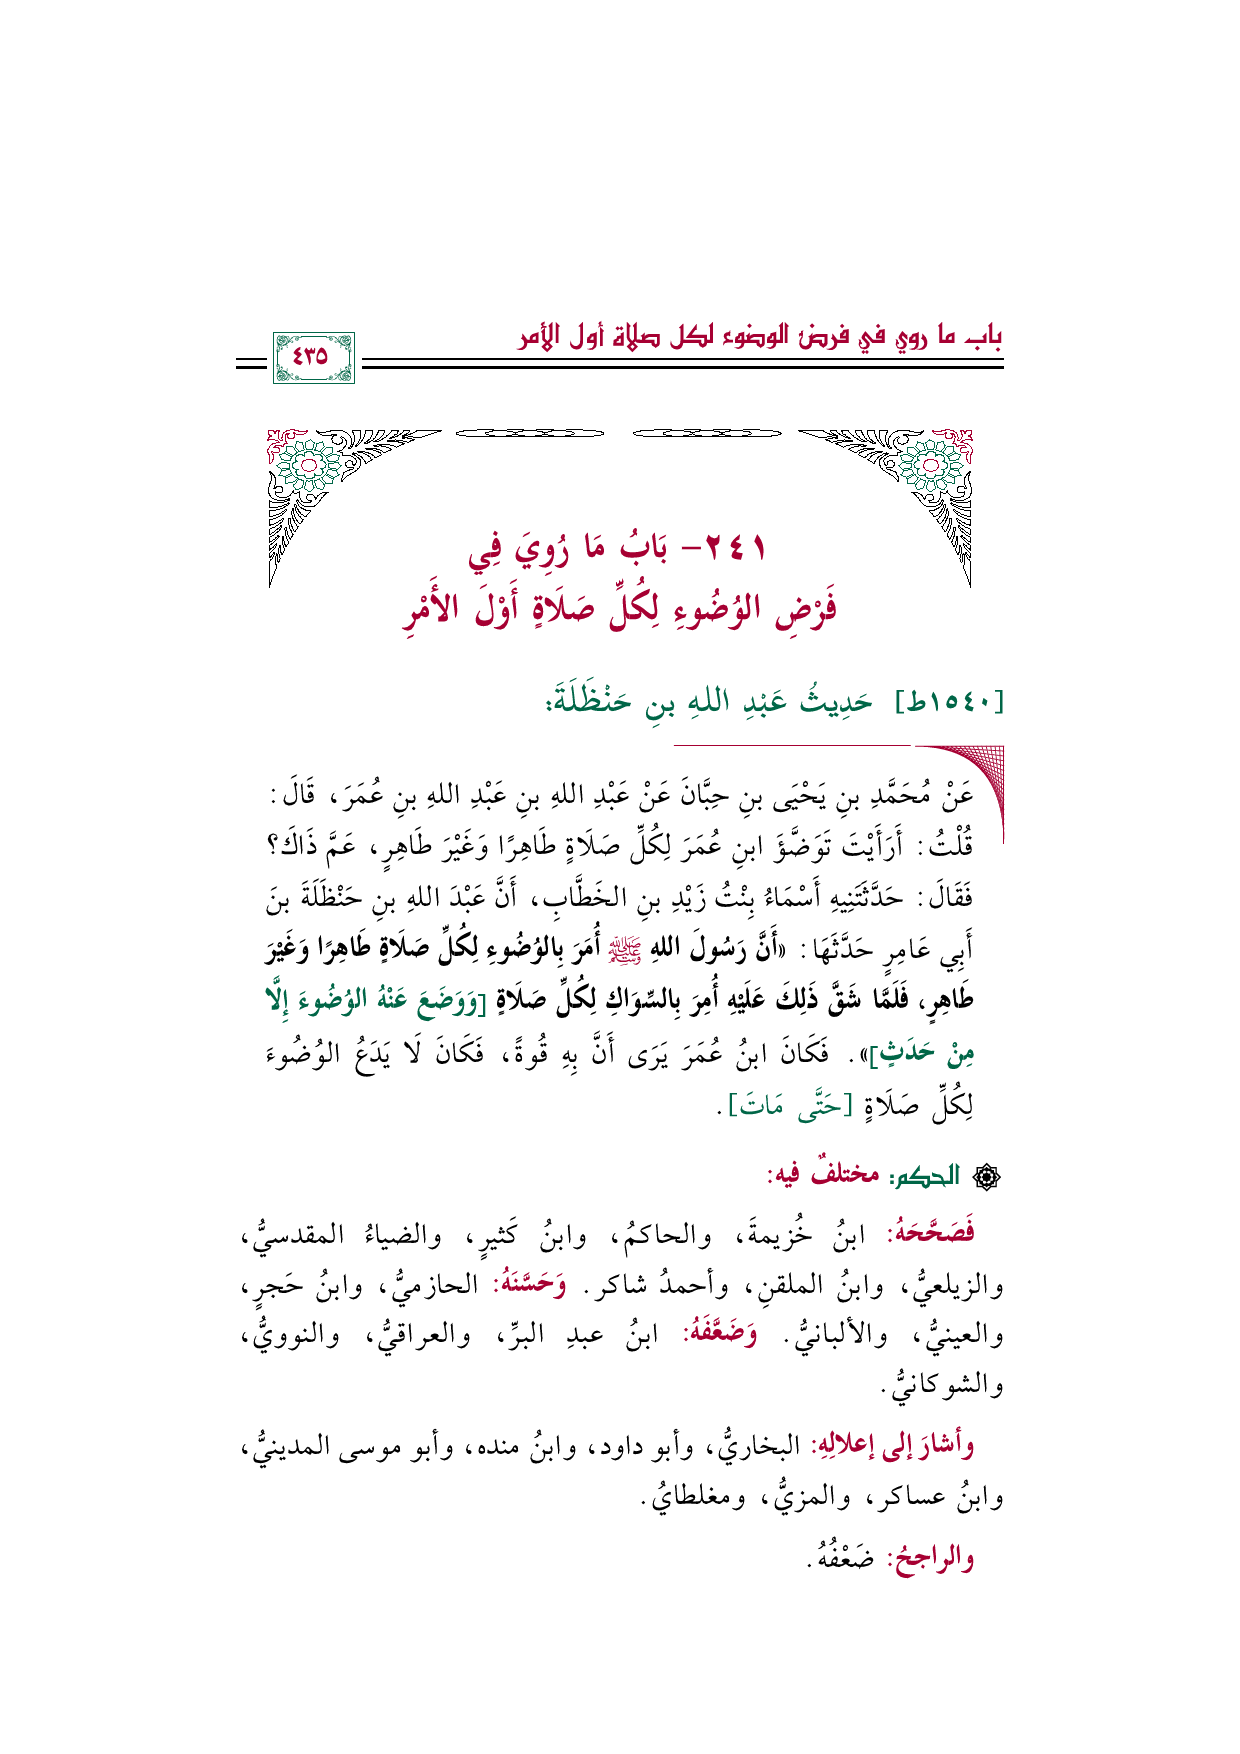 باب ما روي في فرض الوضوء لكل صلاة أول الأمر
٤٣٥
٢٤١- بَابُ مَا رُوِيَ فِي
فَرْضِ الوُضُوءِ لِكُلِّ صَلَاةٍ أَوْلَ الأَمْرِ
[١٥٤٠ط] حَدِيثُ عَبْدِ اللهِ بنِ حَنْظَلَةَ:
عَنْ مُحَمَّدِ بنِ يَحْيَى بنِ حِبَّانَ عَنْ عَبْدِ اللهِ بنِ عَبْدِ اللهِ بنِ عُمَرَ، قَالَ:
قُلْتُ: أَرَأَيْتَ تَوَضَّؤَ ابنِ عُمَرَ لِكُلِّ صَلَاةٍ طَاهِرًا وَغَيْرَ طَاهِرٍ، عَمَّ ذَاكَ؟
فَقَالَ: حَدَّثَتَنِيهِ أَسْمَاءُ بِنْتُ زَيْدِ بنِ الخَطَّابِ، أَنَّ عَبْدَ اللهِ بنِ حَنْظَلَةَ بنَ
أَبِي عَامِرٍ حَدَّثَهَا: «أَنَّ رَسُولَ اللهِ ﷺ أُمَرَ بِالوُضُوءِ لِكُلِّ صَلَاةٍ طَاهِرًا وَغَيْرَ
طَاهِرٍ، فَلَمَّا شَقَّ ذَلِكَ عَلَيْهِ أُمِرَ بِالسِّوَاكِ لِكُلِّ صَلَاةٍ [وَوَضَعَ عَنْهُ الوُضُوءَ إِلَّا
مِنْ حَدَثٍ]». فَكَانَ ابنُ عُمَرَ يَرَى أَنَّ بِهِ قُوةً، فَكَانَ لَا يَدَعُ الوُضُوءَ
لِكُلِّ صَلَاةٍ [حَتَّى مَاتَ].
الحكم: مختلفٌ فيه:
فَصَحَّحَهُ: ابنُ خُزيمةَ، والحاكمُ، وابنُ كَثيرٍ، والضياءُ المقدسيُّ،
والزيلعيُّ، وابنُ الملقنِ، وأحمدُ شاكر. وَحَسَّنَهُ: الحازميُّ، وابنُ حَجرٍ،
والعينيُّ، والألبانيُّ. وَضَعَّفَهُ: ابنُ عبدِ البرِّ، والعراقيُّ، والنوويُّ،
والشوكانيُّ.
وأشارَ إلى إعلالِهِ: البخاريُّ، وأبو داود، وابنُ منده، وأبو موسى المدينيُّ،
وابنُ عساكر، والمزيُّ، ومغلطايُ.
والراجحُ: ضَعْفُهُ.